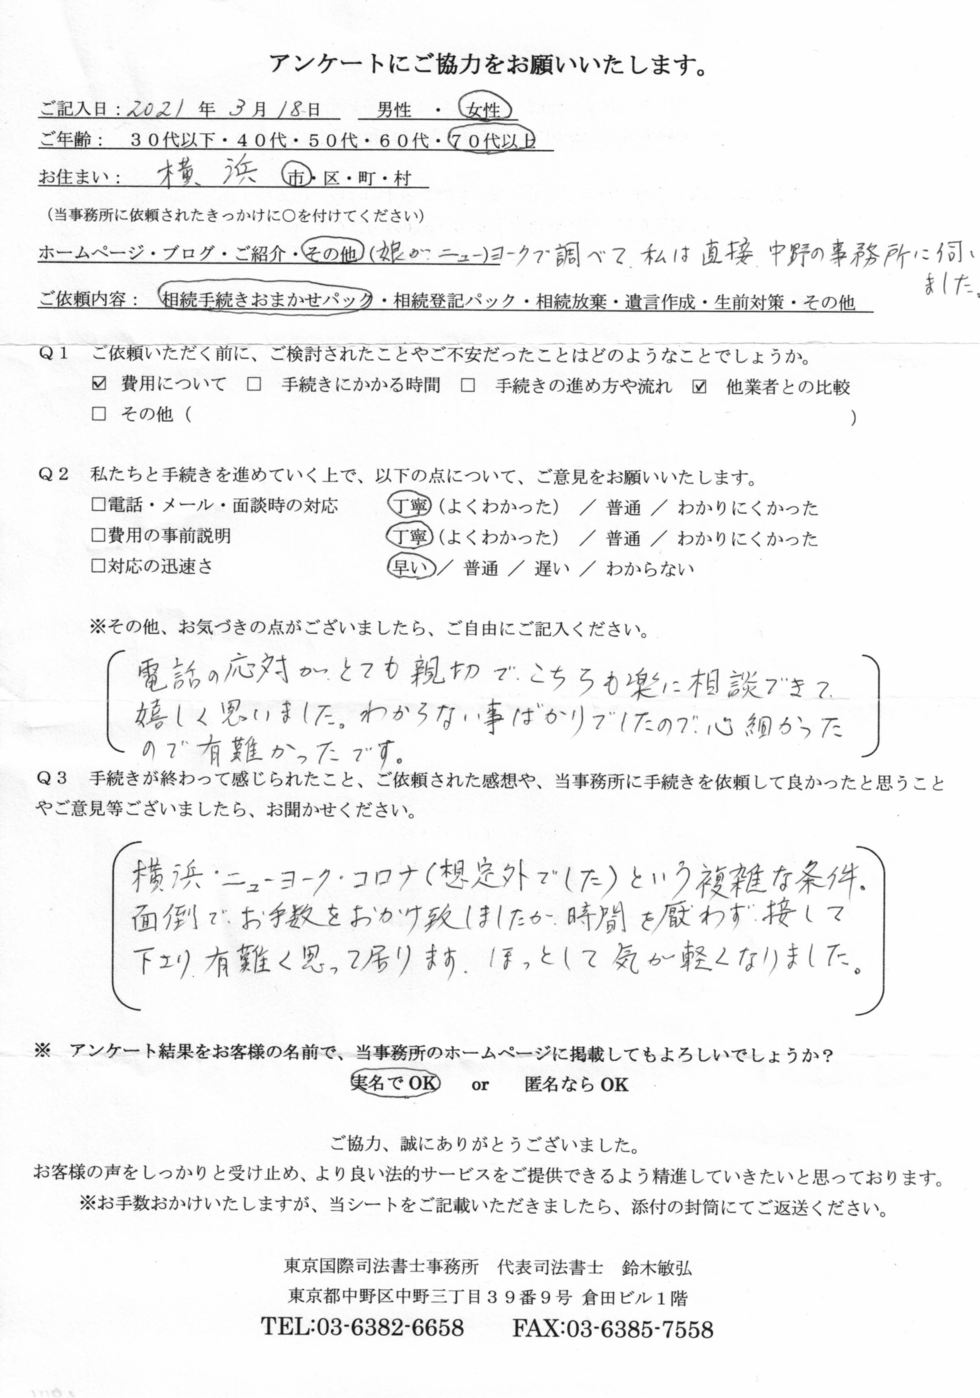 アンケートにご協力をお願いいたします。
ご記入日：2021年 3月 18日　男性 ・ 女性
ご年齢：　３０代以下・４０代・５０代・６０代・７０代以上
お住まい：　横浜　市・区・町・村
（当事務所に依頼されたきっかけに○を付けてください）
ホームページ・ブログ・ご紹介・その他（娘がニューヨークで調べて、私は直接、中野の事務所に伺い
ました。
ご依頼内容：　相続手続きおまかせパック・相続登記パック・相続放棄・遺言作成・生前対策・その他
Ｑ１　ご依頼いただく前に、ご検討されたことやご不安だったことはどのようなことでしょうか。
☑ 費用について　□　手続きにかかる時間　□　手続きの進め方や流れ　☑　他業者との比較
□ その他（　　　）
Ｑ２　私たちと手続きを進めていく上で、以下の点について、ご意見をお願いいたします。
□電話・メール・面談時の対応　丁寧（よくわかった）　／ 普通 ／ わかりにくかった
□費用の事前説明　丁寧（よくわかった）　／ 普通 ／ わかりにくかった
□対応の迅速さ　早い ／ 普通 ／ 遅い ／ わからない
※その他、お気づきの点がございましたら、ご自由にご記入ください。
電話の応対が、とても親切で、こちらも楽に相談できて、
嬉しく思いました。わからない事ばかりでしたので、心細かった
ので有難かったです。
Ｑ３　手続きが終わって感じられたこと、ご依頼された感想や、当事務所に手続きを依頼して良かったと思うこと
やご意見等ございましたら、お聞かせください。
横浜・ニューヨーク・コロナ（想定外でした）という複雑な条件。
面倒で、お手数をおかけ致しましたが、時間を厭わず、接して
下さり、有難く思って居ります。ほっとして気が軽くなりました。
※　アンケート結果をお客様の名前で、当事務所のホームページに掲載してもよろしいでしょうか？
実名で OK　or　匿名なら OK
ご協力、誠にありがとうございました。
お客様の声をしっかりと受け止め、より良い法的サービスをご提供できるよう精進していきたいと思っております。
※お手数おかけいたしますが、当シートをご記載いただきましたら、添付の封筒にてご返送ください。
東京国際司法書士事務所　代表司法書士　鈴木敏弘
東京都中野区中野三丁目３９番９号 倉田ビル１階
TEL:03-6382-6658　FAX:03-6385-7558